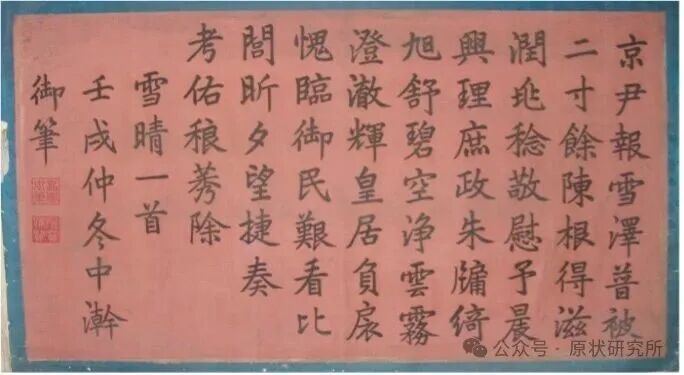 京尹報雪澤普被
二寸餘陳根得滋
潤兆稔敬慰予晨
興理庶政朱牖綺
旭舒碧空浄雲霧
澄澈輝皇居負扆
愧臨御民艱看比
閭昕夕望捷奏
考佑稂莠除
雪晴一首
壬戌仲冬中澣
御筆
公众号·原状研究所